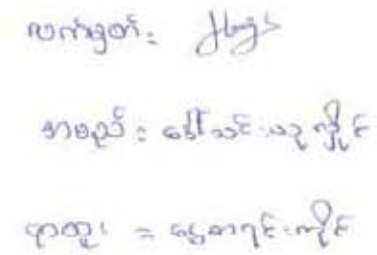 လက်မှတ်:
အမည် : ဒေါ်သင်းယုလှိုင်
ရာထူး = ရွှေစာရင်းကိုင်